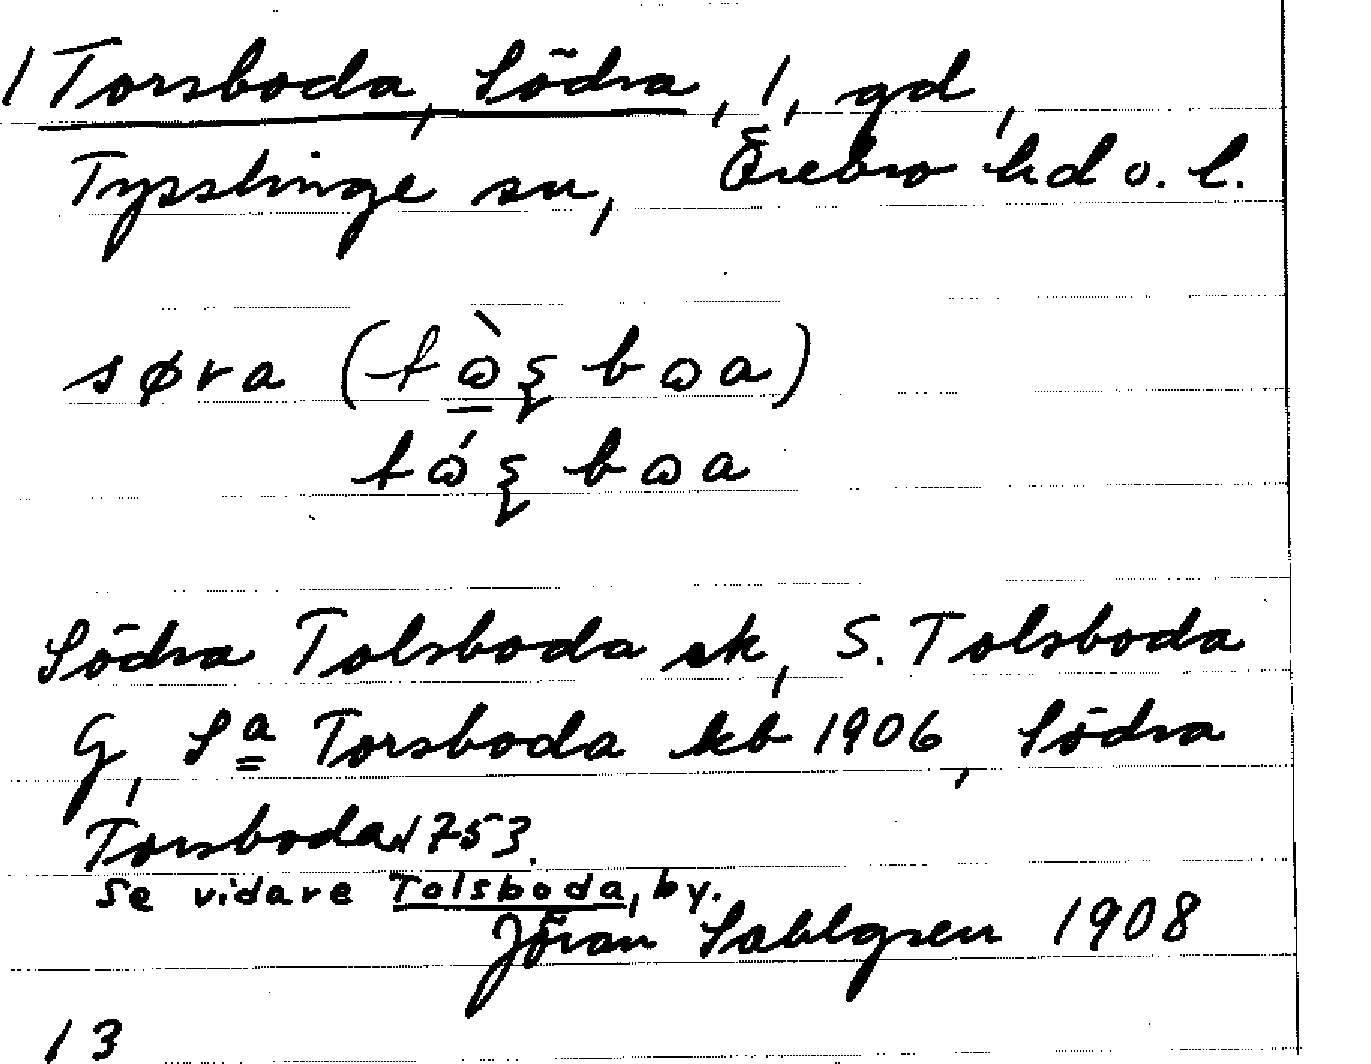 1 Torsboda, Södra, 1, gd,
Tysslinge sn, Örebro hd o. l.
søra (tɷ̀ʂbɷa)
tɷ́ʂbɷa
Södra Tolsboda ek, S. Tolsboda
G, Sª Torsboda kb 1906, Södra
Torsboda 1753.
Se vidare Tolsboda, by.
Jöran Sahlgren 1908
13